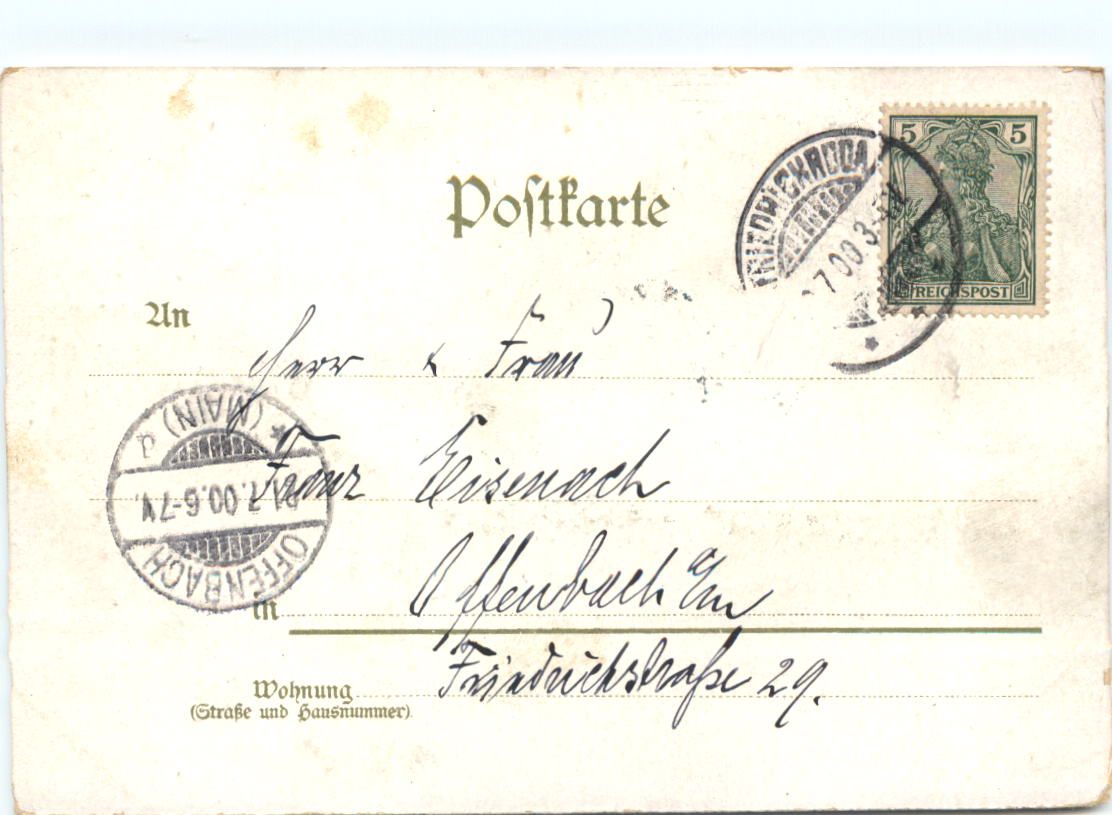 5 5
REICHSPOST
FRIEDRICHRODA
7.00.3
Postkarte
An
Herr & Frau
Franz Eisenach
Offenbach a/m
in
Friedrichstraße 29.
Wohnung
(Straße und Hausnummer).
OFFENBACH
7.00.6-7V.
* (MAIN)